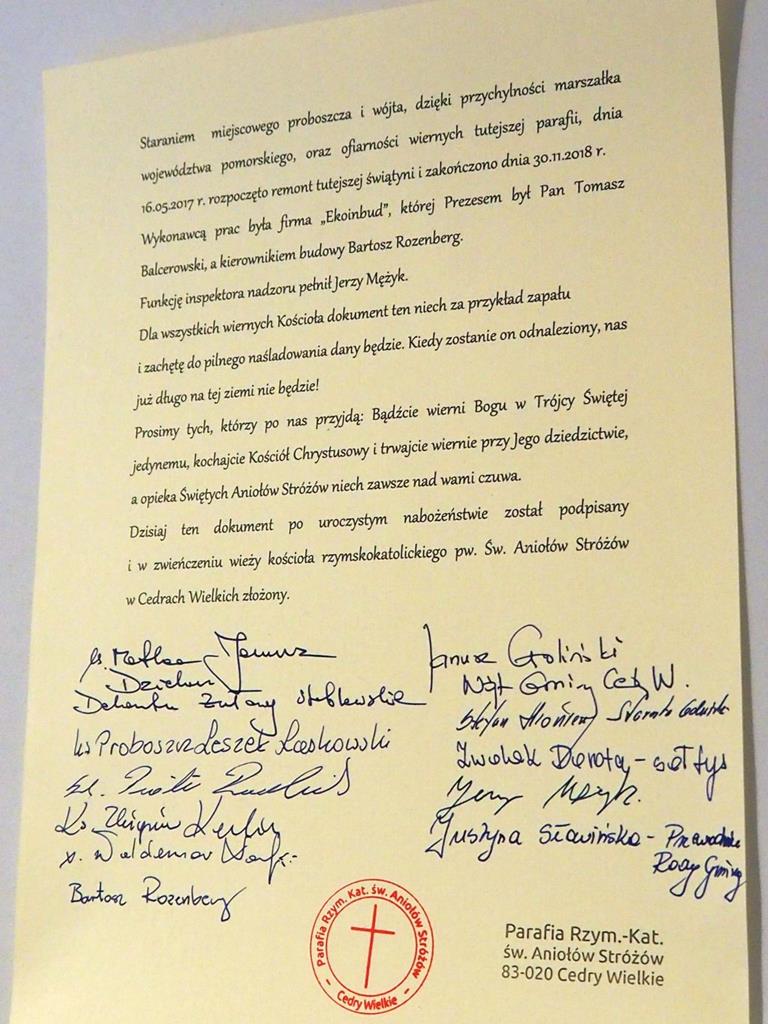 Staraniem miejscowego proboszcza i wójta, dzięki przychylności marszałka
województwa pomorskiego, oraz ofiarności wiernych tutejszej parafii, dnia
16.05.2017 r. rozpoczęto remont tutejszej świątyni i zakończono dnia 30.11.2018 r.
Wykonawcą prac była firma „Ekoinbud”, której Prezesem był Pan Tomasz
Balcerowski, a kierownikiem budowy Bartosz Rozenberg.
Funkcję inspektora nadzoru pełnił Jerzy Mężyk.
Dla wszystkich wiernych Kościoła dokument ten niech za przykład zapału
i zachętę do pilnego naśladowania dany będzie. Kiedy zostanie on odnaleziony, nas
już długo na tej ziemi nie będzie!
Prosimy tych, którzy po nas przyjdą: Bądźcie wierni Bogu w Trójcy Świętej
jedynemu, kochajcie Kościół Chrystusowy i trwajcie wiernie przy Jego dziedzictwie,
a opieka Świętych Aniołów Stróżów niech zawsze nad wami czuwa.
Dzisiaj ten dokument po uroczystym nabożeństwie został podpisany
i w zwieńczeniu wieży kościoła rzymskokatolickiego pw. Św. Aniołów Stróżów
w Cedrach Wielkich złożony.
Janusz
Dziekan
Dekanatu Żuławy Steblewskie
ks Proboszcz Leszek Laskowski
Ks. Zbigniew
x. Waldemar
Bartosz Rozenberg
Janusz Goliński
Wójt Gminy Cedry W.
Stefan Starosta Gdański
Dorota - sołtys
Jerzy Mężyk
Justyna Sławińska - Przewodnicz
Rady Gminy
Parafia Rzym. Kat. św. Aniołów Stróżów
- Cedry Wielkie -
Parafia Rzym.-Kat.
św. Aniołów Stróżów
83-020 Cedry Wielkie